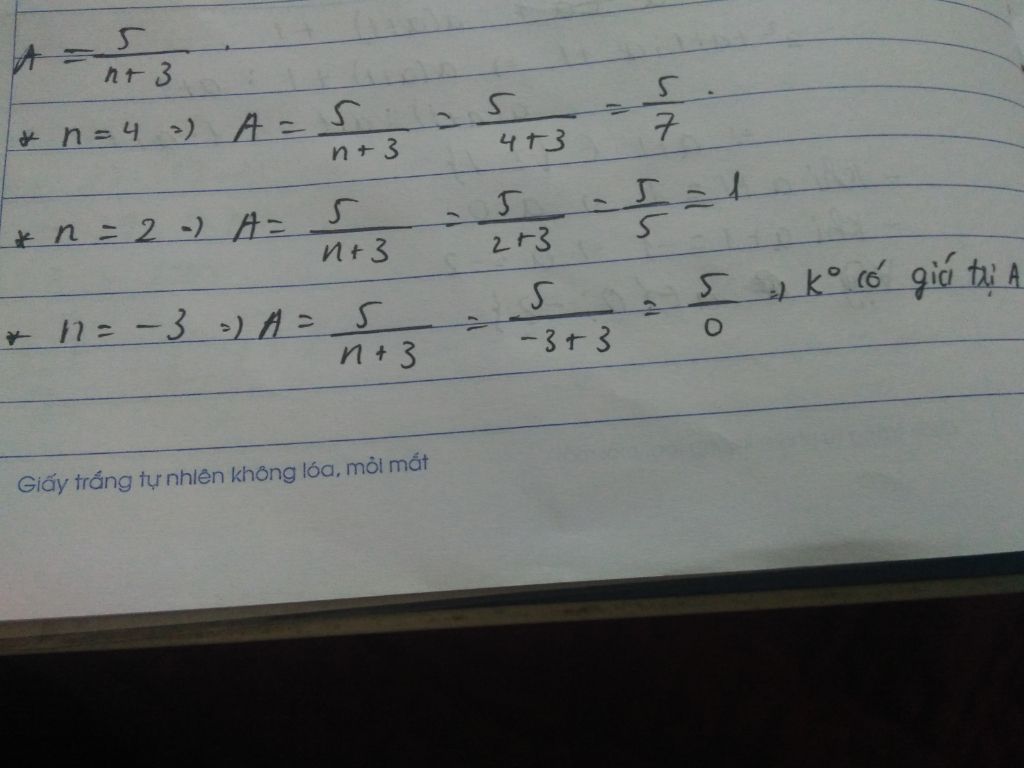 A = 5/(n+3) .
* n = 4 => A = 5/(n+3) = 5/(4+3) = 5/7 .
* n = 2 => A = 5/(n+3) = 5/(2+3) = 5/5 = 1
* n = -3 => A = 5/(n+3) = 5/(-3+3) = 5/0 => k° có giá trị A
Giấy trắng tự nhiên không lóa, mỏi mắt